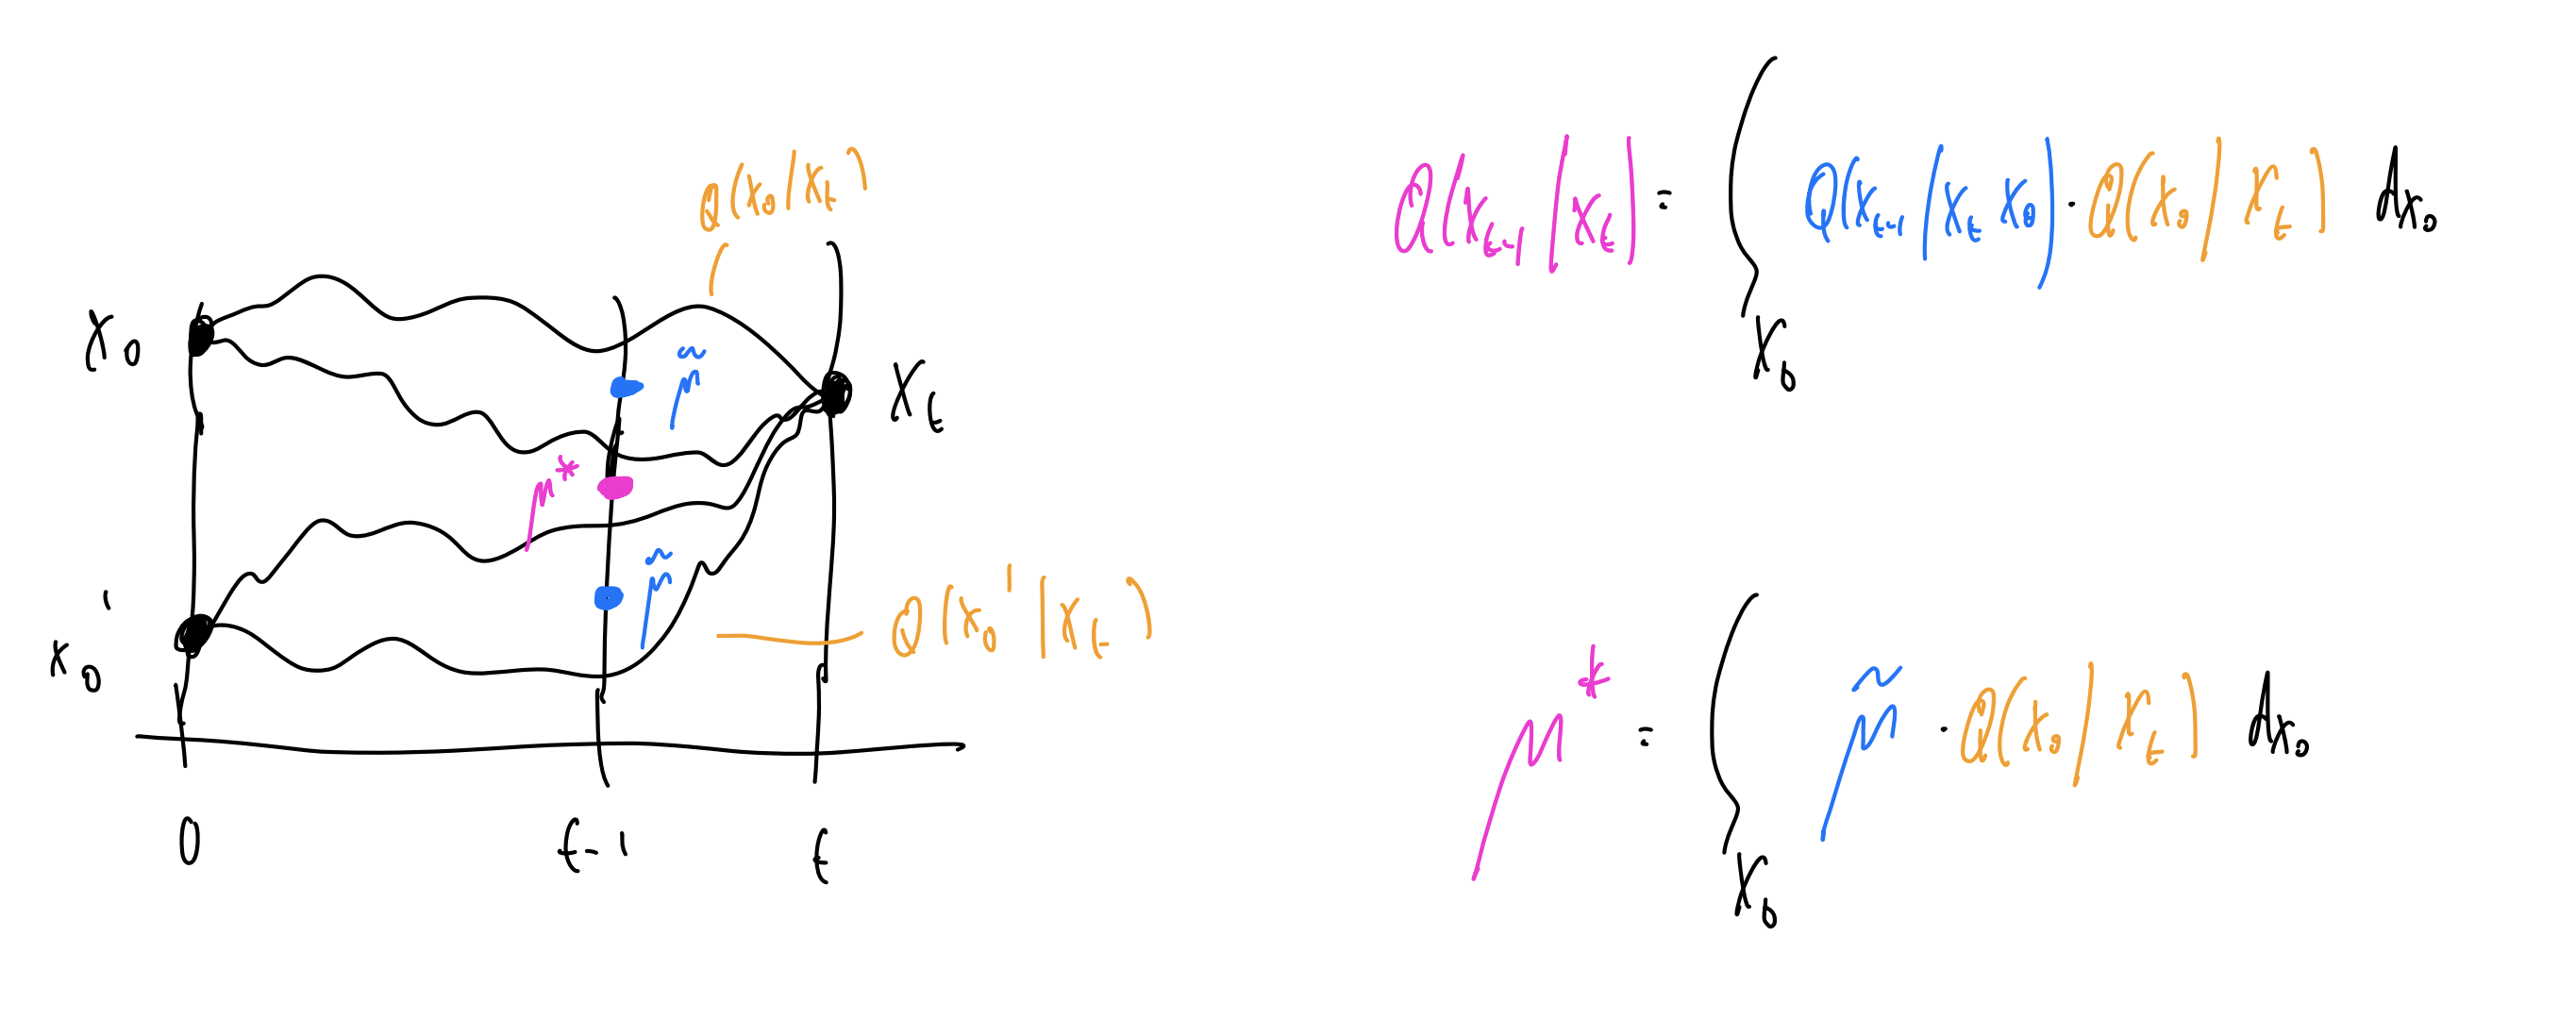 Q(x₀|x_t)
X₀
μ̃
X_t
μ*
μ̃
x₀'
Q(x₀'|x_t)
0 t-1 t
Q(x_{t-1}|x_t) = ∫_{x₀} Q(x_{t-1}|x_t x₀) · Q(x₀|x_t) dx₀
μ* = ∫_{x₀} μ̃ · Q(x₀|x_t) dx₀